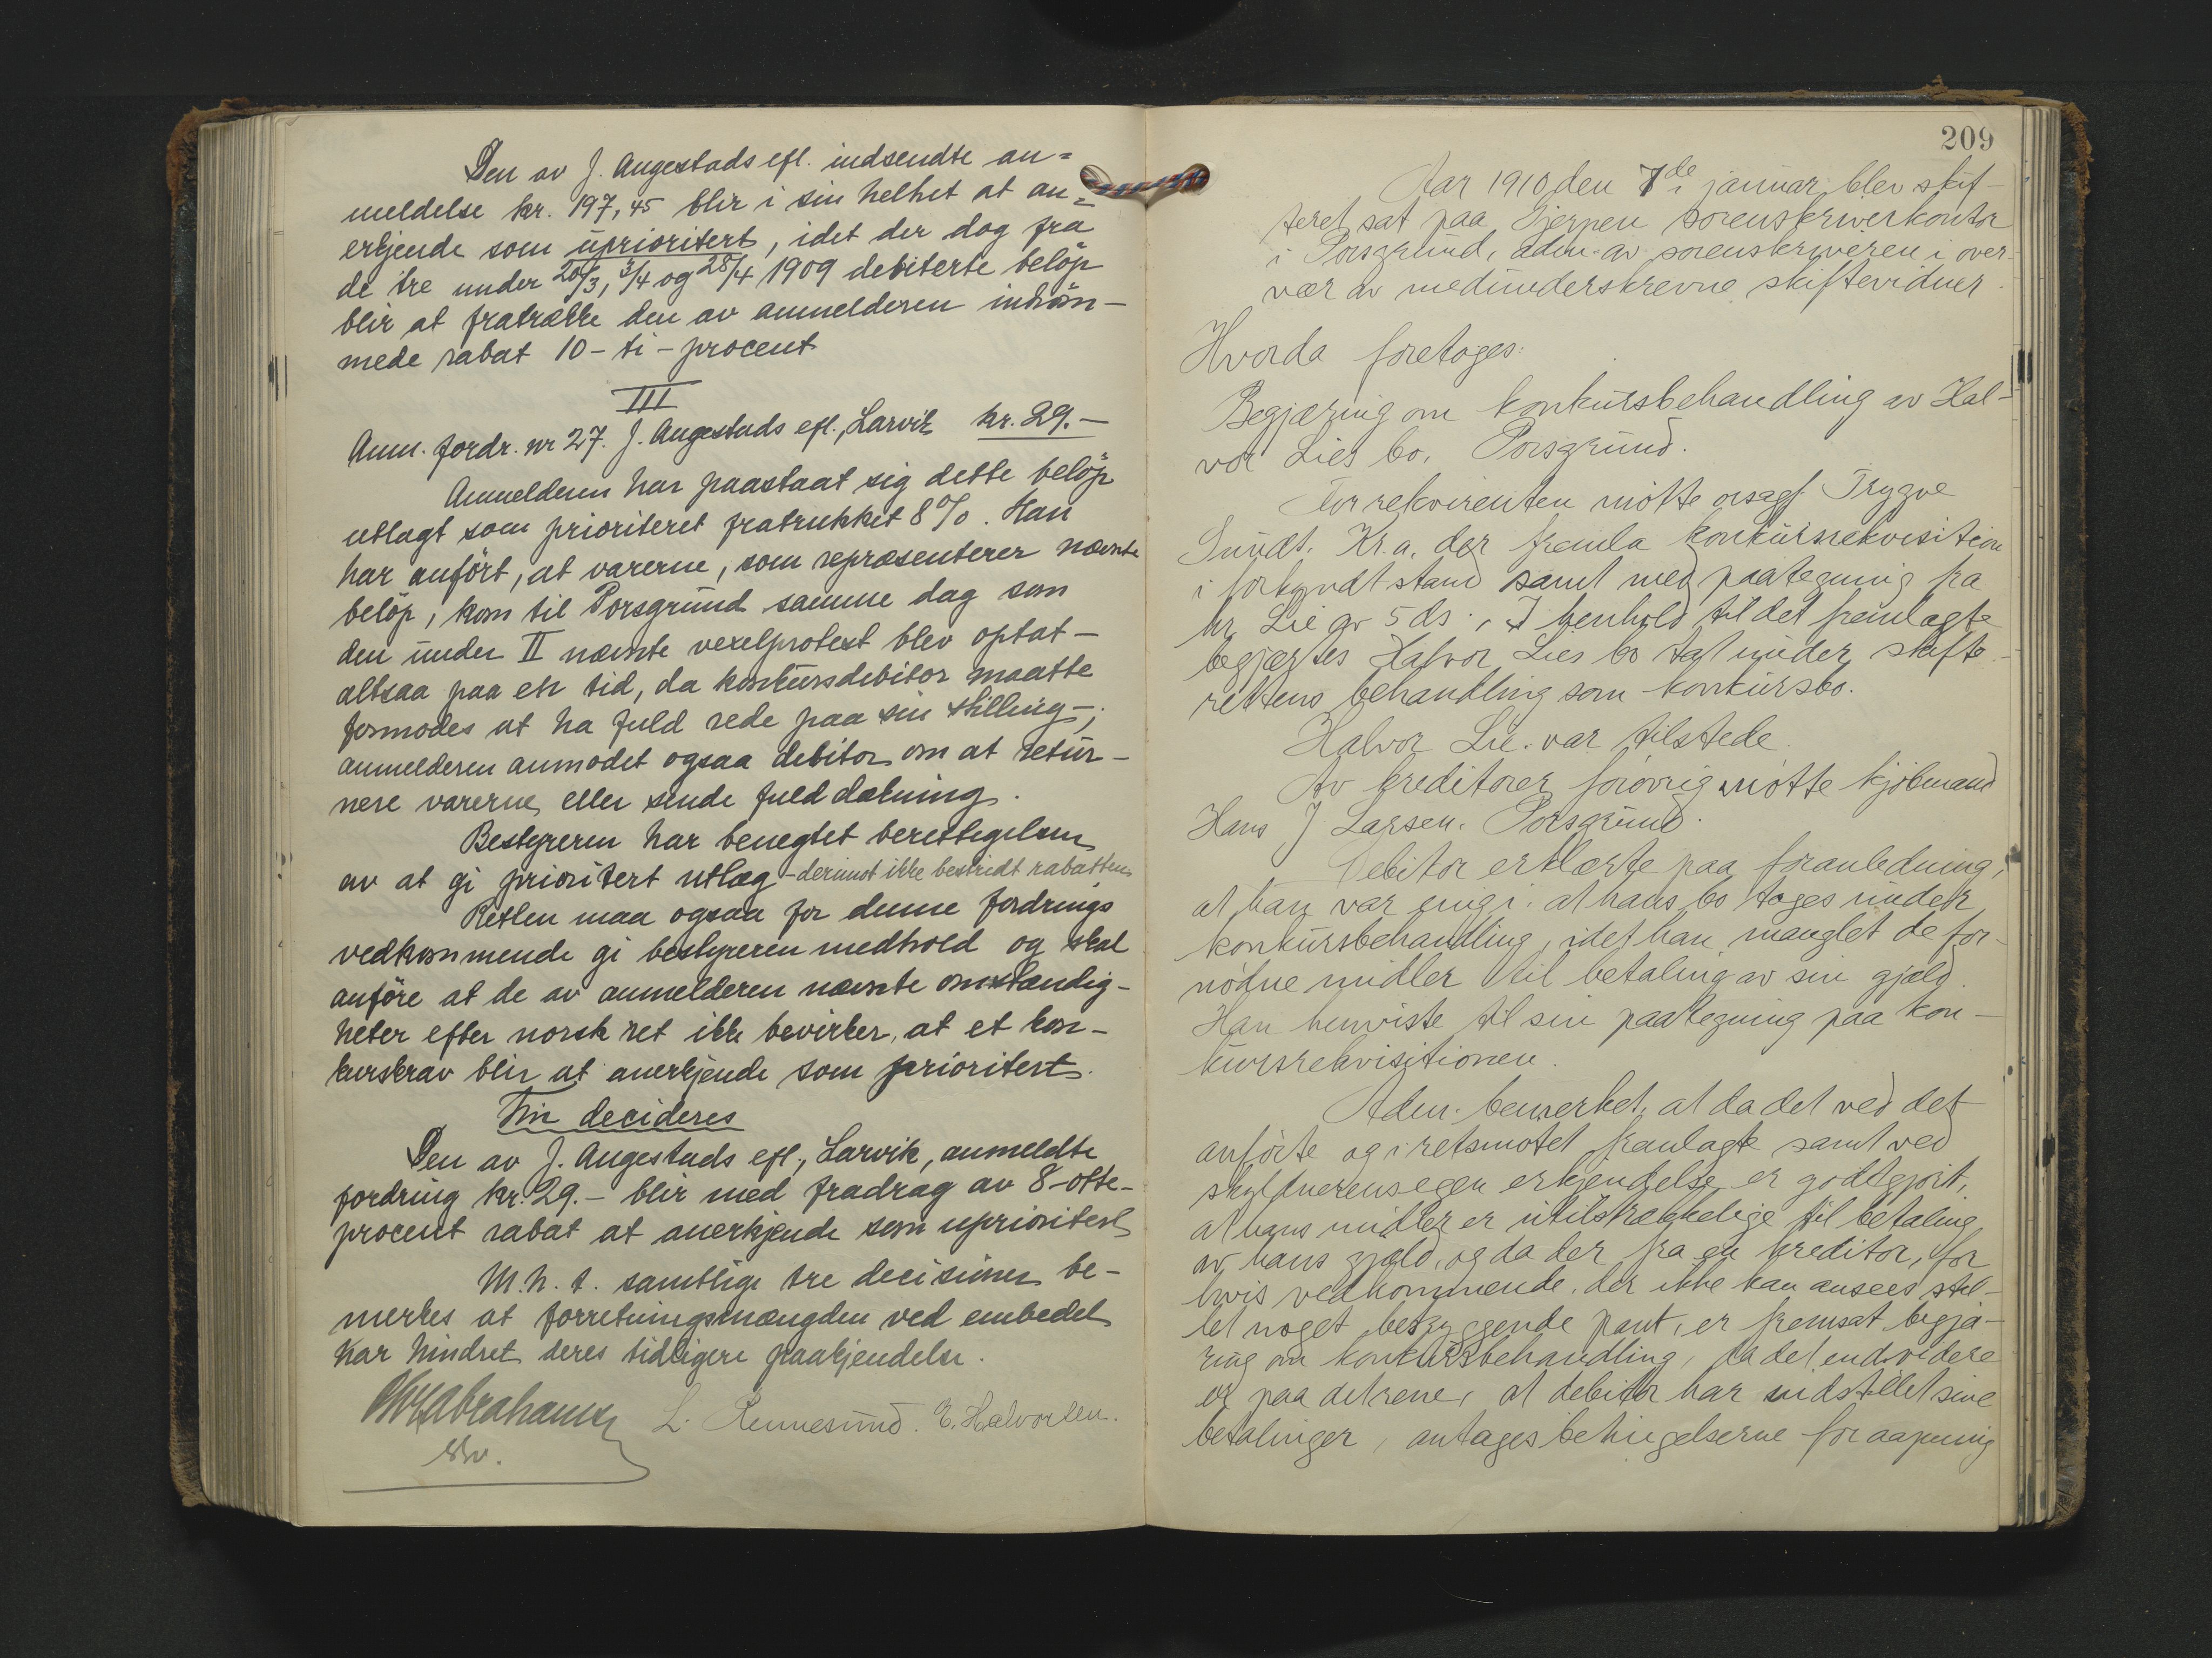 Den av J. Augestads efl. indsendte an=
meldelse kr. 197,45 blir i sin helhet at an=
erkjende som uprioritert, idet der dog fra
de tre under 20/3, 3/4 og 28/4 1909 debiterte beløp
blir at fratrække den av anmelderen indrøm-
mede rabat 10 - ti - procent
III
Anm. fordr. nr 27. J. Augestads efl., Larvik kr. 29.-
Anmelderen har paastaat sig dette beløp
utlagt som prioriteret fratrukket 8%. Han
har anført, at varerne, som repræsenterer nævnte
beløp, kom til Porsgrund samme dag som
den under II nævnte vexelprotest blev optat -
altsaa paa en tid, da konkursdebitor maatte
formodes at ha fuld rede paa sin stilling -;
anmelderen anmodet ogsaa debitor om at retur-
nere varerne eller sende fuld dækning.
Bestyreren har benegtet berettigelsen
av at gi prioritert utlæg - derimot ikke bestridt rabatten
Retten maa ogsaa for denne fordrings
vedkommende gi bestyreren medhold og skal
anføre at de av anmelderen nævnte omstændig-
heter efter norsk ret ikke bevirker, at et kon-
kurskrav blir at anerkjende som prioritert.
Thi decideres
Den av J. Augestads efl., Larvik, anmeldte
fordring kr. 29.- blir med fradrag av 8 - otte -
procent rabat at anerkjende som uprioritert
M.h.t. samtlige tre decisioner be-
merkes at forretningsmængden ved embedet
har hindret deres tidligere paakjendelse.
Abrahamsen L. Rennesund. E. Halvorsen.
skr.
209
Aar 1910 den 7de januar blev skif-
teret sat paa Gjerpen sorenskriverkontor
i Porsgrund, adm. av sorenskriveren i over-
vær av medunderskrevne skiftevidner.
Hvorda foretoges:
Begjæring om konkursbehandling av Hal-
vor Lies bo, Porsgrund.
For rekvirenten møtte orsagf. Trygve
Sundt, Kr.a. der fremla konkursrekvisition
i forkyndt stand samt med paategning fra
hr. Lie av 5 ds. I henhold til det fremlagte
begjærtes Halvor Lies bo tat under skifte-
rettens behandling som konkursbo.
Halvor Lie var tilstede.
Av kreditorer forøvrig møtte kjøbmand
Hans J. Larsen. Porsgrund.
Debitor erklærte paa foranledning,
at han var enig i at hans bo toges under
konkursbehandling, idet han manglet de for-
nødne midler til betaling av sin gjæld.
Han henviste til sin paategning paa kon-
kursrekvisitionen.
Adm. bemerket, at da det ved det
anførte og i retsmøtet fremlagte samt ved
skyldnerens egen erkjendelse er godtgjort,
at hans midler er utilstrækkelige til betaling
av hans gjæld, og da der fra en kreditor, for
hvis vedkommende der ikke kan ansees stil-
let noget betryggende pant, er fremsat begjæ-
ring om konkursbehandling, da det endvidere
er paa det rene, at debitor har indstillet sine
betalinger, antages betingelserne for aapning